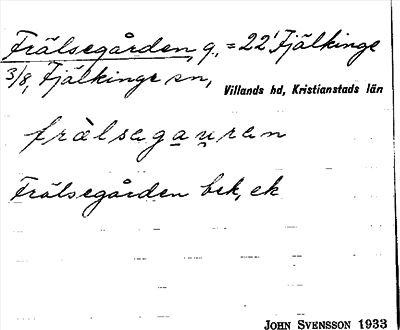 Frälsegården, g., = 22' Fjälkinge
3/8, Fjälkinge sn,
Villands hd, Kristianstads län
frälsegauren
Frälsegården bek, ek
JOHN SVENSSON 1933